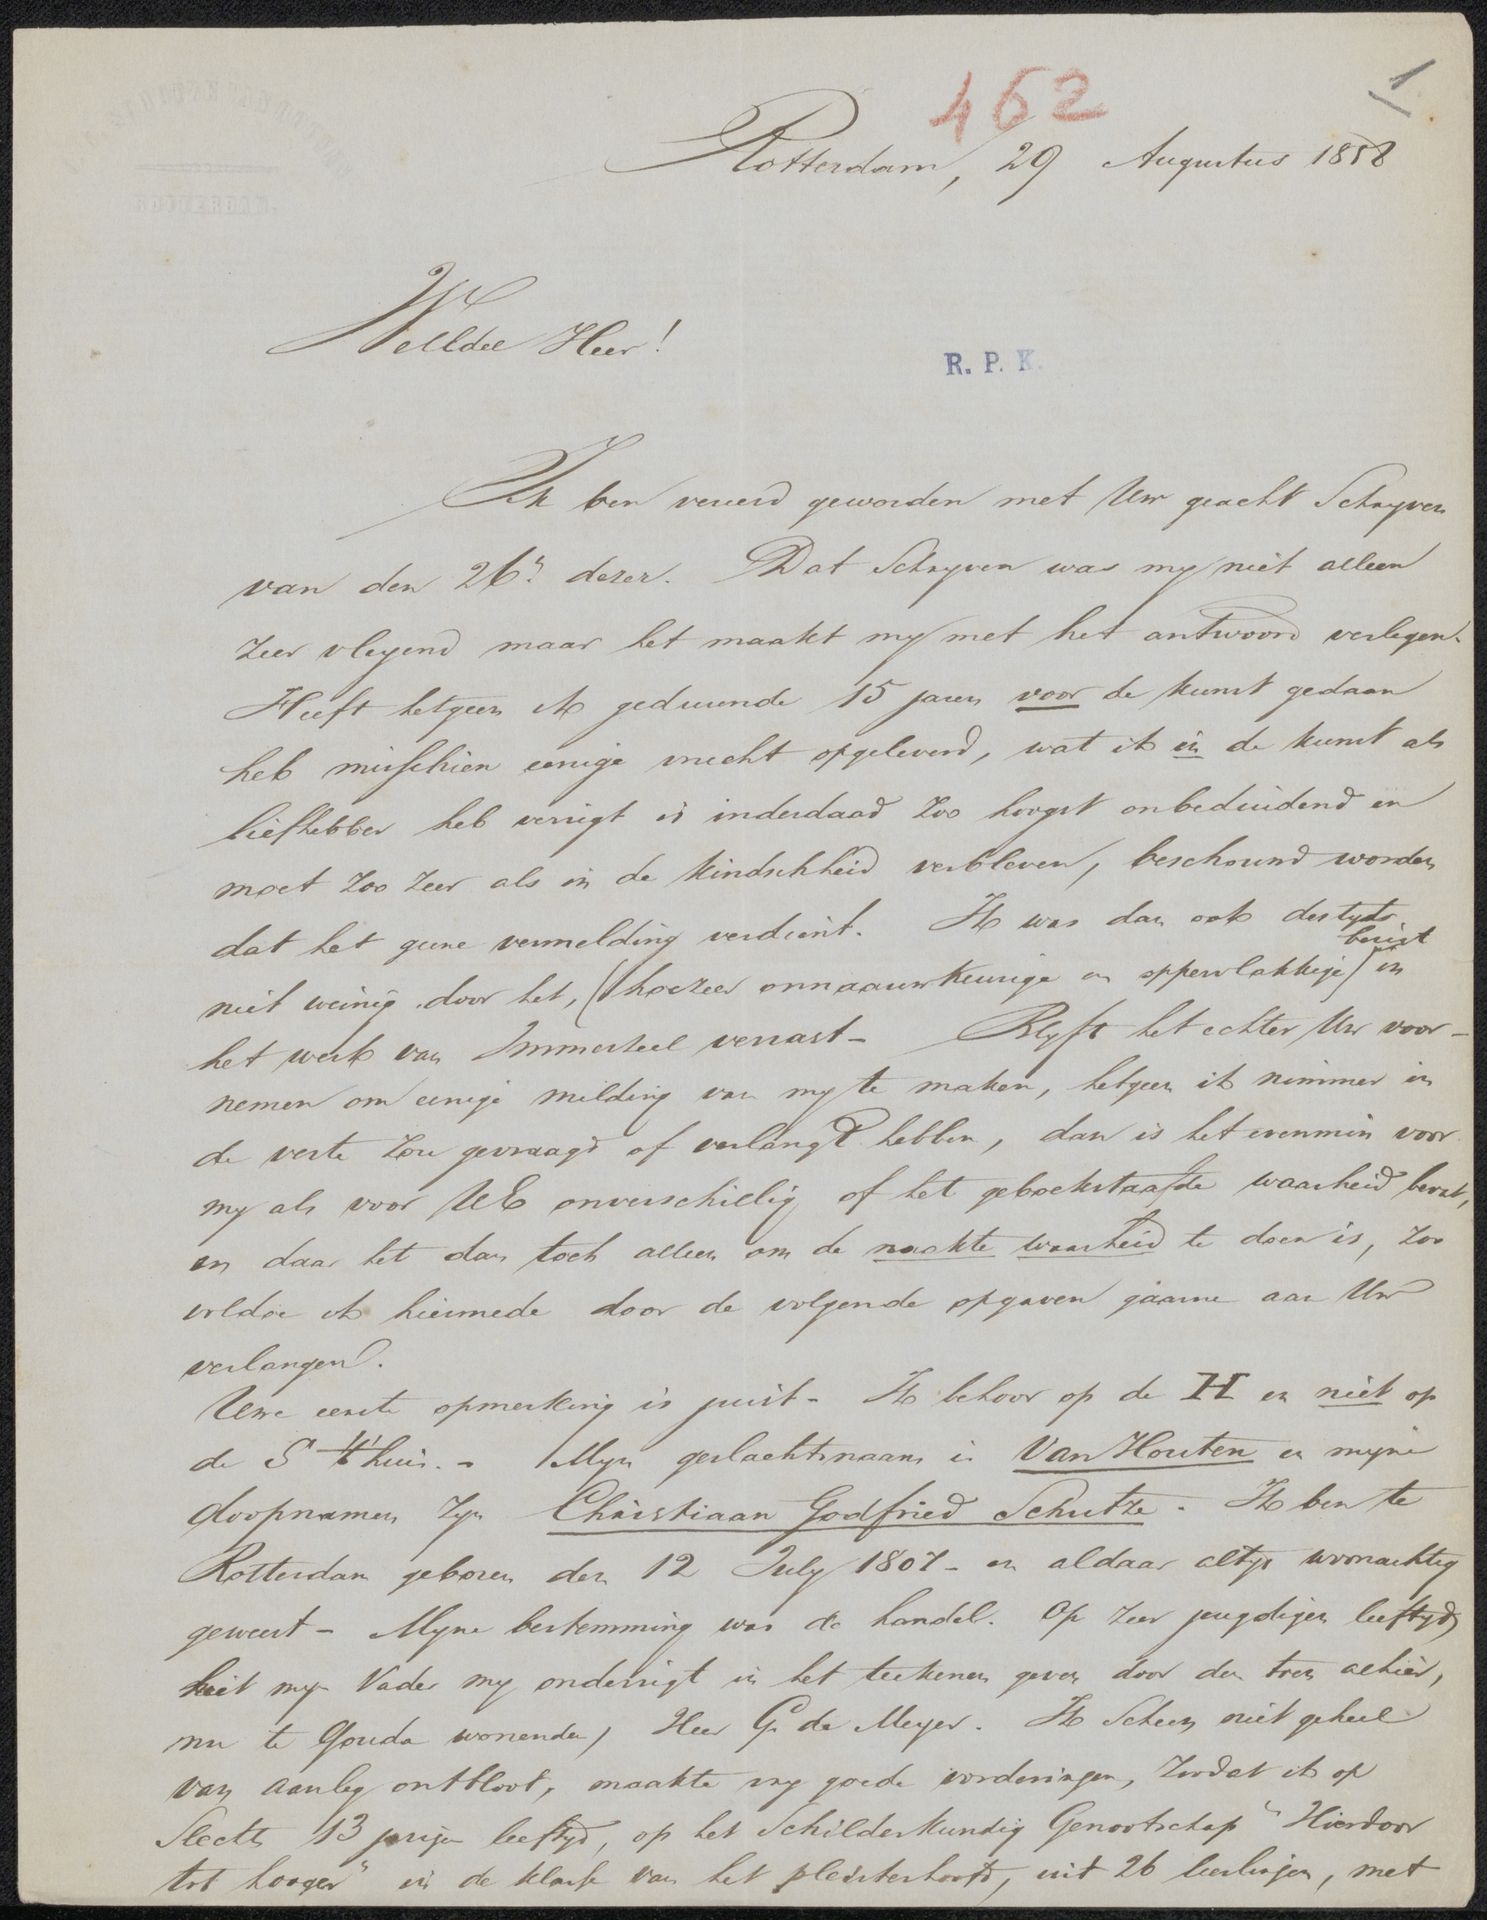 462
1
Rotterdam, 29 Augustus 1858
ROTTERDAM.
WelEdele Heer!
R. P. K.
Ik ben vereerd geworden met Uw geacht Schryven
van den 26n dezer. Dat Schryven was my niet alleen
zeer vleyend maar het maakt my met het antwoord verlegen.
Heeft hetgeen ik gedurende 15 jaren voor de kunst gedaan
heb misschien eenige vrucht opgeleverd, wat ik in de kunst als
liefhebber heb verrigt is inderdaad zoo hoogst onbeduidend en
moet zoo zeer als in de kindschheid verbleven, beschouwd worden
dat het geene vermelding verdient. Ik was dan ook destyds
niet weinig door het, (hoezeer onnaauwkeurige en oppervlakkige) berigt in
het werk van Immerzeel verrast - Blyft het echter Uw voor-
nemen om eenige melding van my te maken, hetgeen ik nimmer in
de verte zou gevraagd of verlangd hebben, dan is het evenmin voor
my als voor UE onverschillig of het geboekstaafde waarheid bevat,
en daar het dan toch alleen om de naakte waarheid te doen is, zoo
voldoe ik hiermede door de volgende opgaven gaarne aan Uw
verlangen.
Uwe eerste opmerking is juist - Ik behoor op de H en niet op
de S t'huis. - Myn geslachtsnaam is Van Houten en myne
doopnamen zyn Christiaan Godfried Schutze. Ik ben te
Rotterdam geboren den 12 July 1807 - en aldaar altyd woonachtig
geweest - Myne bestemming was de handel. Op zeer jeugdigen leeftyd
liet myn Vader my onderrigt in het teekenen geven door den toen alhier,
nu te Gouda wonenden, Heer G. de Meyer. Ik scheen niet geheel
van aanleg ontbloot, maakte my goede vorderingen, zoodat ik op
Slechts 13 jarigen leeftyd, op het Schilderkundig Genootschap "Hierdoor
tot hooger" in de klasse van het pleisterhoofd, uit 26 leerlingen, met